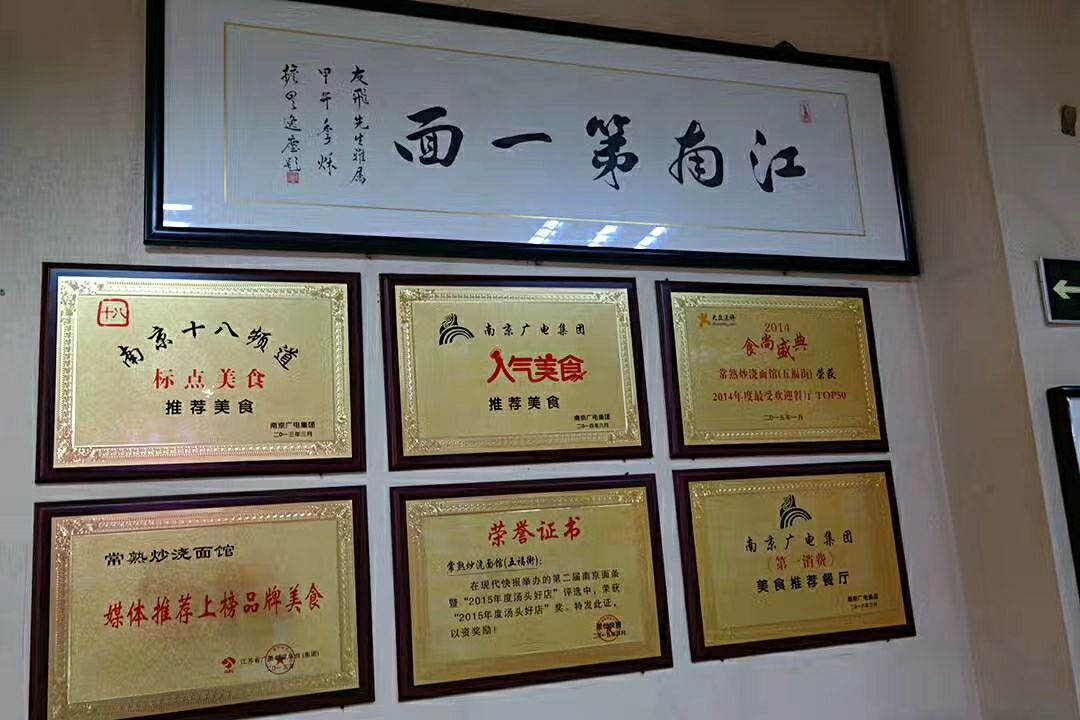 江南第一面
友飛先生雅属
甲午季秋
十八
南京十八频道
标点美食
推荐美食
南京广电集团
二〇一三年三月
南京广电集团
人气美食
推荐美食
南京广电集团
二〇一四年六月
大众点评
2014
食尚盛典
常熟炒浇面馆(五福街) 荣获
2014年度最受欢迎餐厅 TOP50
二〇一五年一月
常熟炒浇面馆
媒体推荐上榜品牌美食
荣誉证书
常熟炒浇面馆(五福街):
在现代快报举办的第二届南京面条
暨“2015年度汤头好店”评选中,荣获
“2015年度汤头好店”奖。特发此证,
以资奖励!
南京广电集团
(第一消费)
美食推荐餐厅
南京广电集团